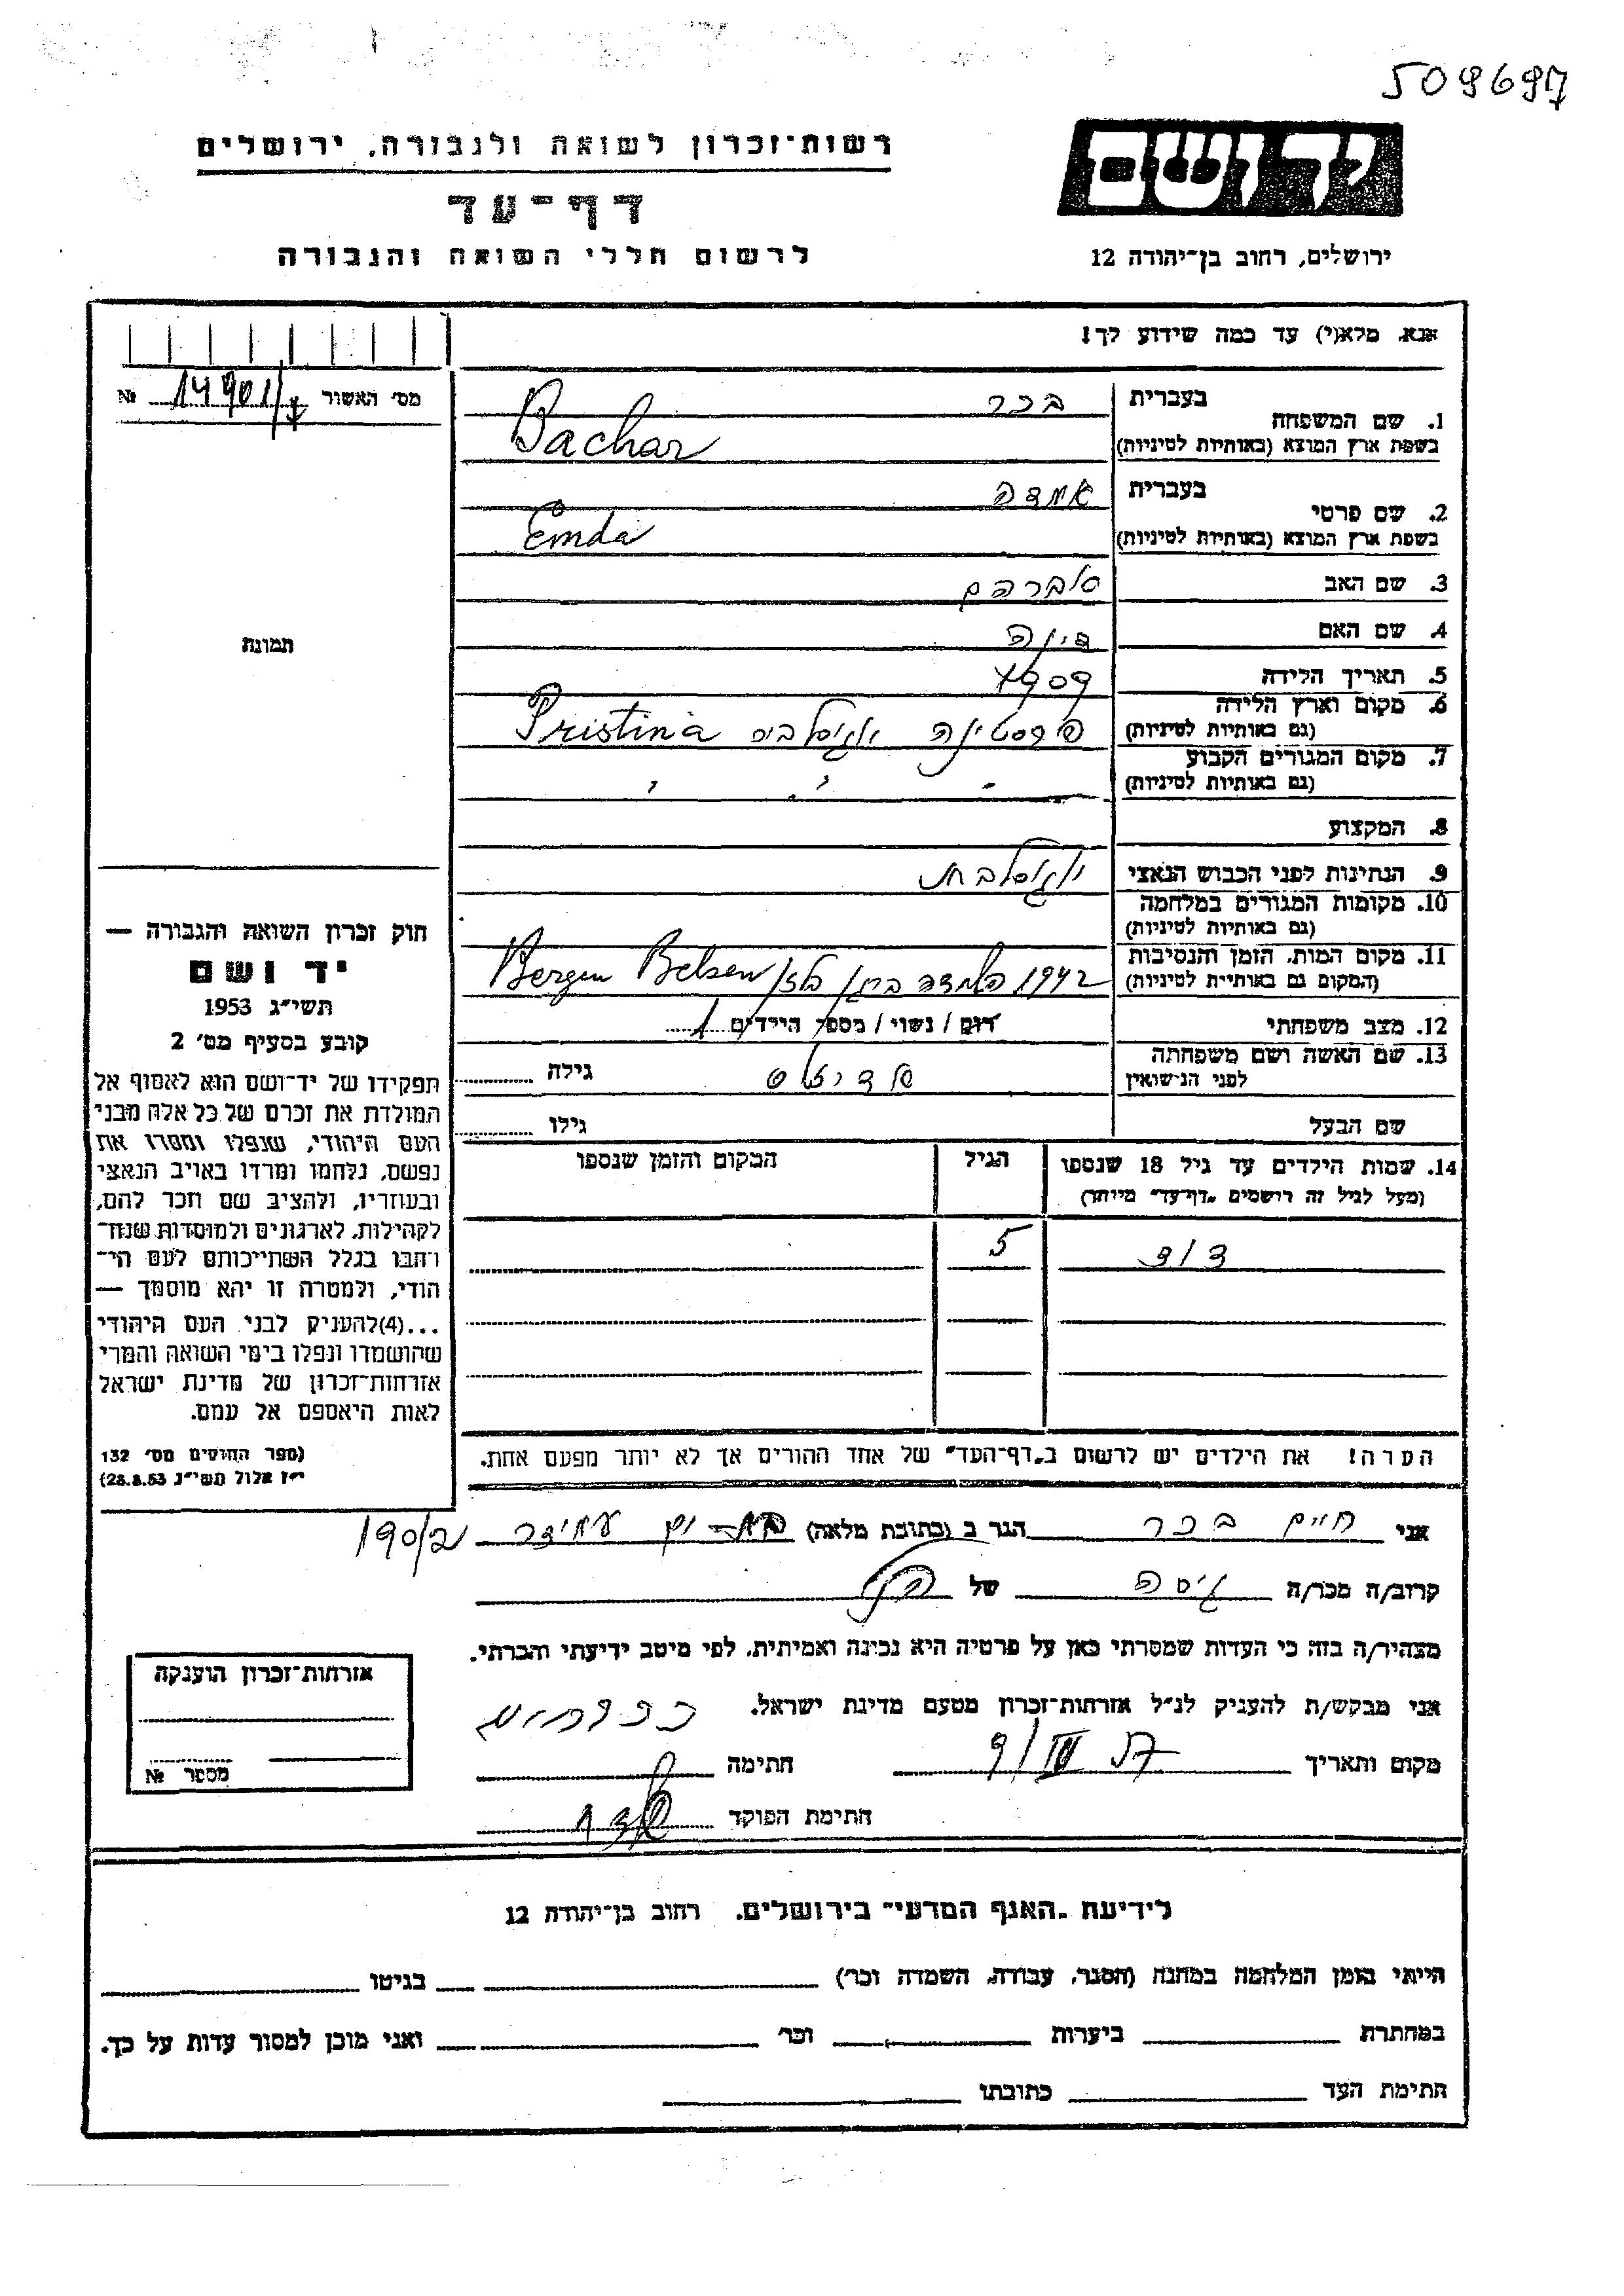 509697
רשות־זכרון לשואה ולגבורה, ירושלים
יד ושם
דף־עד
לרשום חללי השואה והגבורה
ירושלים, רחוב בן־יהודה 12
אנא, מלא(י) עד כמה שידוע לך!
מס' האשור 14901/ №
1. שם המשפחה
בעברית בכר
בשפת ארץ המוצא (באותיות לטיניות) Bachar
2. שם פרטי
בעברית אמדה
בשפת ארץ המוצא (באותיות לטיניות) Emda
3. שם האב אברהם
4. שם האם דינה
5. תאריך הלידה 1909
6. מקום וארץ הלידה
(גם באותיות לטיניות) פרסטינה יוגוסלביה Pristina
7. מקום המגורים הקבוע
(גם באותיות לטיניות) " " "
8. המקצוע
9. הנתינות לפני הכבוש הנאצי יוגוסלבית
10. מקומות המגורים במלחמה
(גם באותיות לטיניות)
11. מקום המות, הזמן והנסיבות
(המקום גם באותיות לטיניות) 1942 השמדה ברגן בלזן Bergen Belsen
12. מצב משפחתי רווק / נשוי / מספר הילדים 1
13. שם האשה ושם משפחתה
לפני הנישואין גילה
שם הבעל גילו
14. שמות הילדים עד גיל 18 שנספו הגיל המקום והזמן שנספו
(מעל לגיל זה רושמים "דף־עד" מיוחד)
דוד 5
הערה! את הילדים יש לרשום ב"דף־העד" של אחד ההורים אך לא יותר מפעם אחת.
תמונה
חוק זכרון השואה והגבורה —
יד ושם
תשי"ג 1953
קובע בסעיף מס' 2
תפקידו של יד־ושם הוא לאסוף אל
המולדת את זכרם של כל אלה מבני
העם היהודי, שנפלו ומסרו את
נפשם, נלחמו ומרדו באויב הנאצי
ובעוזריו, ולהציב שם וזכר להם,
לקהילות, לארגונים ולמוסדות שנח־
רבו בגלל השתייכותם לעם הי־
הודי, ולמטרה זו יהא מוסמך —
...(4) להעניק לבני העם היהודי
שהושמדו ונפלו בימי השואה והמרי
אזרחות־זכרון של מדינת ישראל
לאות היאספם אל עמם.
(ספר החוקים מס' 132
י"ז אלול תשי"ג 28.8.53)
אני חיים בכר הגר ב (כתובת מלאה) עמידר 190/2
קרוב/ה מכר/ה גיסה של הנ"ל
מצהיר/ה בזה כי העדות שמסרתי כאן על פרטיה היא נכונה ואמיתית, לפי מיטב ידיעתי והכרתי.
אני מבקש/ת להעניק לנ"ל אזרחות־זכרון מטעם מדינת ישראל.
מקום ותאריך 9/IV 57 חתימה
חתימת הפוקד
אזרחות־זכרון הוענקה
מספר №
לידיעת "האגף המדעי" בירושלים, רחוב בן־יהודה 12
הייתי בזמן המלחמה במחנה (הסגר, עבודה, השמדה וכו') בגיטו
במחתרת ביערות וכו' ואני מוכן למסור עדות על כך.
חתימת העד כתובתו